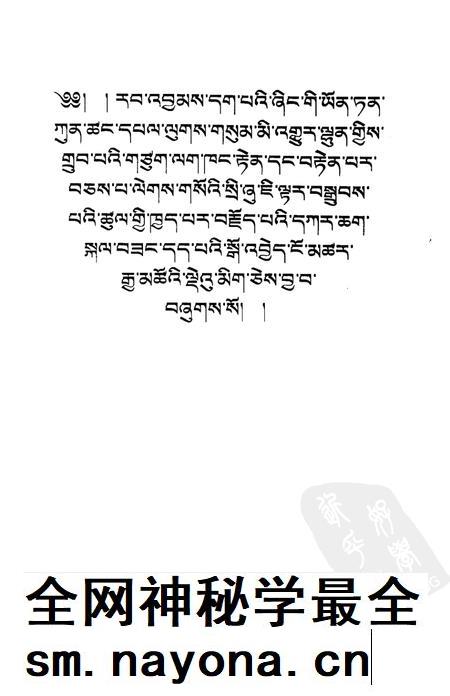 ༄༅། །རབ་འབྱམས་དག་པའི་ཞིང་གི་ཡོན་ཏན་
ཀུན་ཚང་དཔལ་ལུགས་གསུམ་མི་འགྱུར་ལྷུན་གྱིས་
གྲུབ་པའི་གཙུག་ལག་ཁང་རྟེན་དང་བརྟེན་པར་
བཅས་པ་ལེགས་གསོའི་སྲི་ཞུ་ཇི་ལྟར་བསྒྲུབས་
པའི་ཚུལ་གྱི་ཁྱད་པར་བརྗོད་པའི་དཀར་ཆག་
སྐལ་བཟང་དད་པའི་སྒོ་འབྱེད་ངོ་མཚར་
རྒྱ་མཚོའི་ལྡེའུ་མིག་ཅེས་བྱ་བ་
བཞུགས་སོ། །
全网神秘学最全
sm.nayona.cn